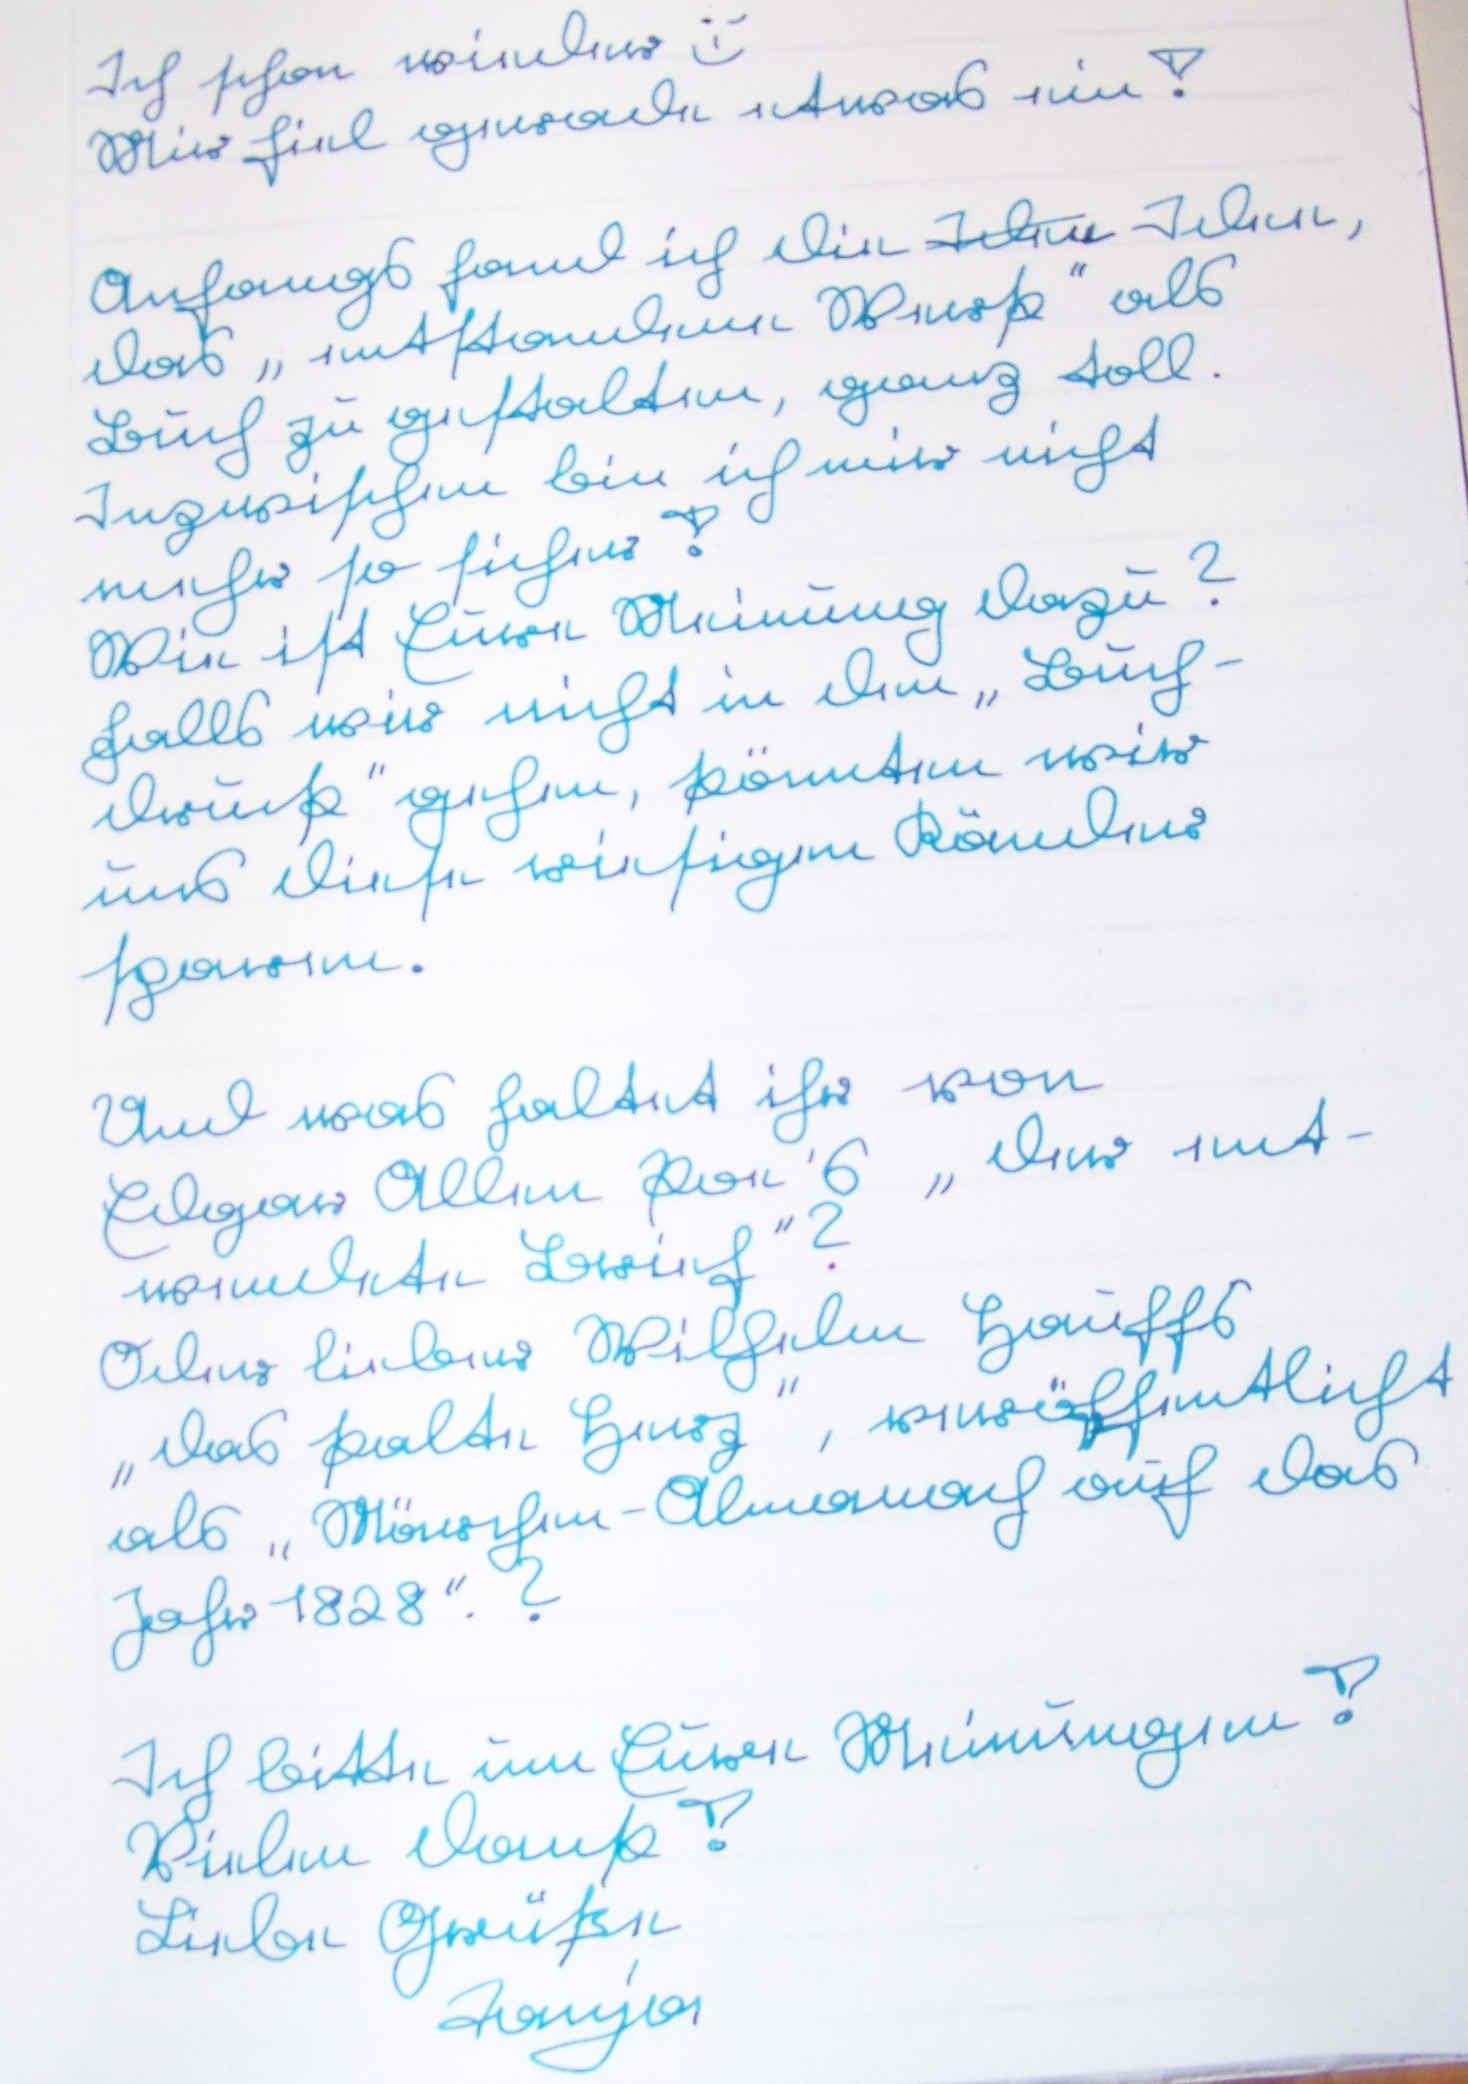 Ich schon wieder :-)
Mir fiel gerade etwas ein!
Anfangs fand ich die Idee Idee,
das „entstandene Werk" als
Buch zu gestalten, ganz toll.
Inzwischen bin ich mir nicht
mehr so sicher!
Wie ist Eure Meinung dazu?
Falls wir nicht in den „Buch-
druck" gehen, könnten wir
uns diese riesigen Ränder
sparen.
Und was haltet ihr von
Edgar Allen Poe's „der ent-
wendete Brief"?
Oder lieber Wilhelm Hauffs
„das kalte Herz", veröffentlicht
als „Märchen-Almanach auf das
Jahr 1828".?
Ich bitte um Eure Meinungen!
Vielen Dank!
Liebe Grüße
Tanja